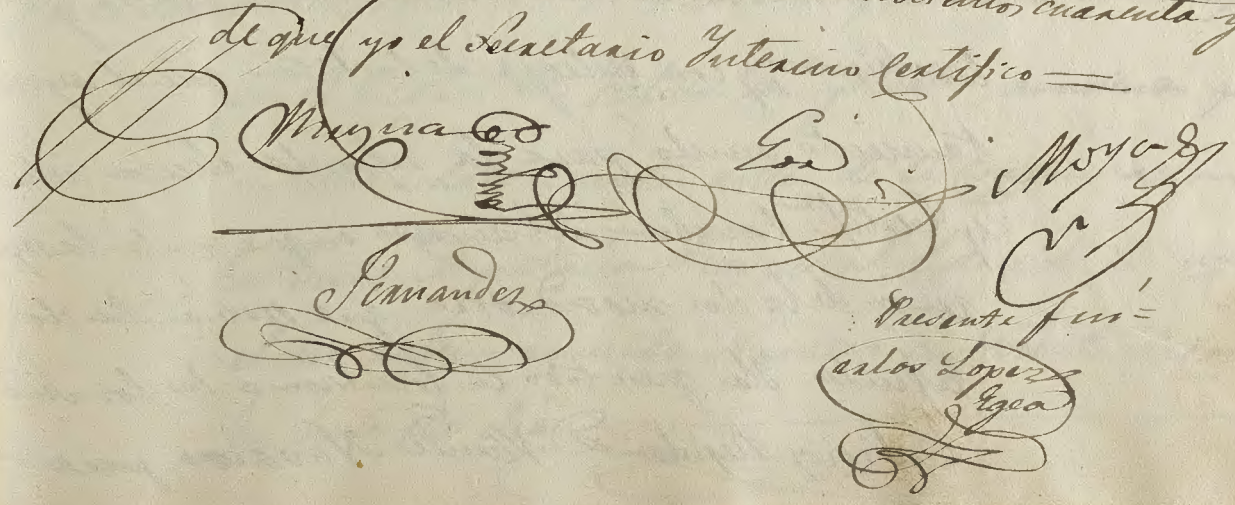 cuarenta y
de que yo el Secretario Interino Certifico
Moya
Fernandez
Presente fui=
Carlos Lopez
Egea